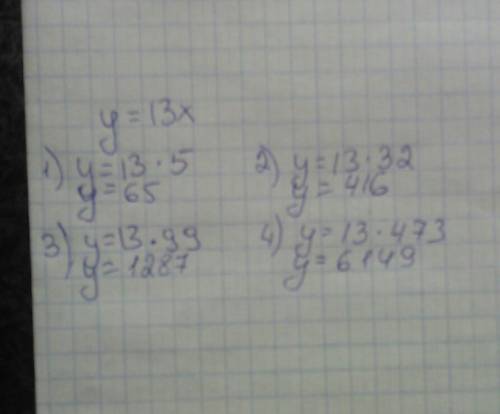 y = 13x
1) y = 13 · 5
y = 65
2) y = 13 · 32
y = 416
3) y = 13 · 99
y = 1287
4) y = 13 · 473
y = 6149